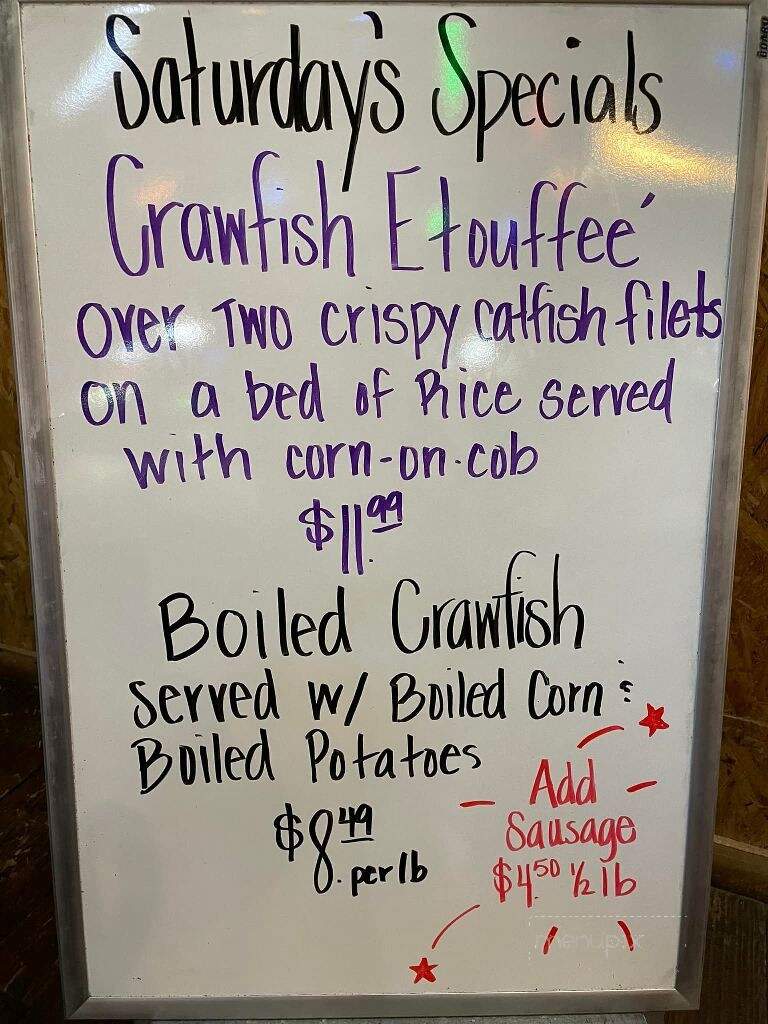 Saturday's Specials
Crawfish Etouffeé
over Two crispy catfish filets
on a bed of Rice served
with corn-on-cob
$11.99
Boiled Crawfish
served w/ Boiled Corn &
Boiled Potatoes
$8.49
per lb
Add
Sausage
$4.50 1/2 lb
menupix